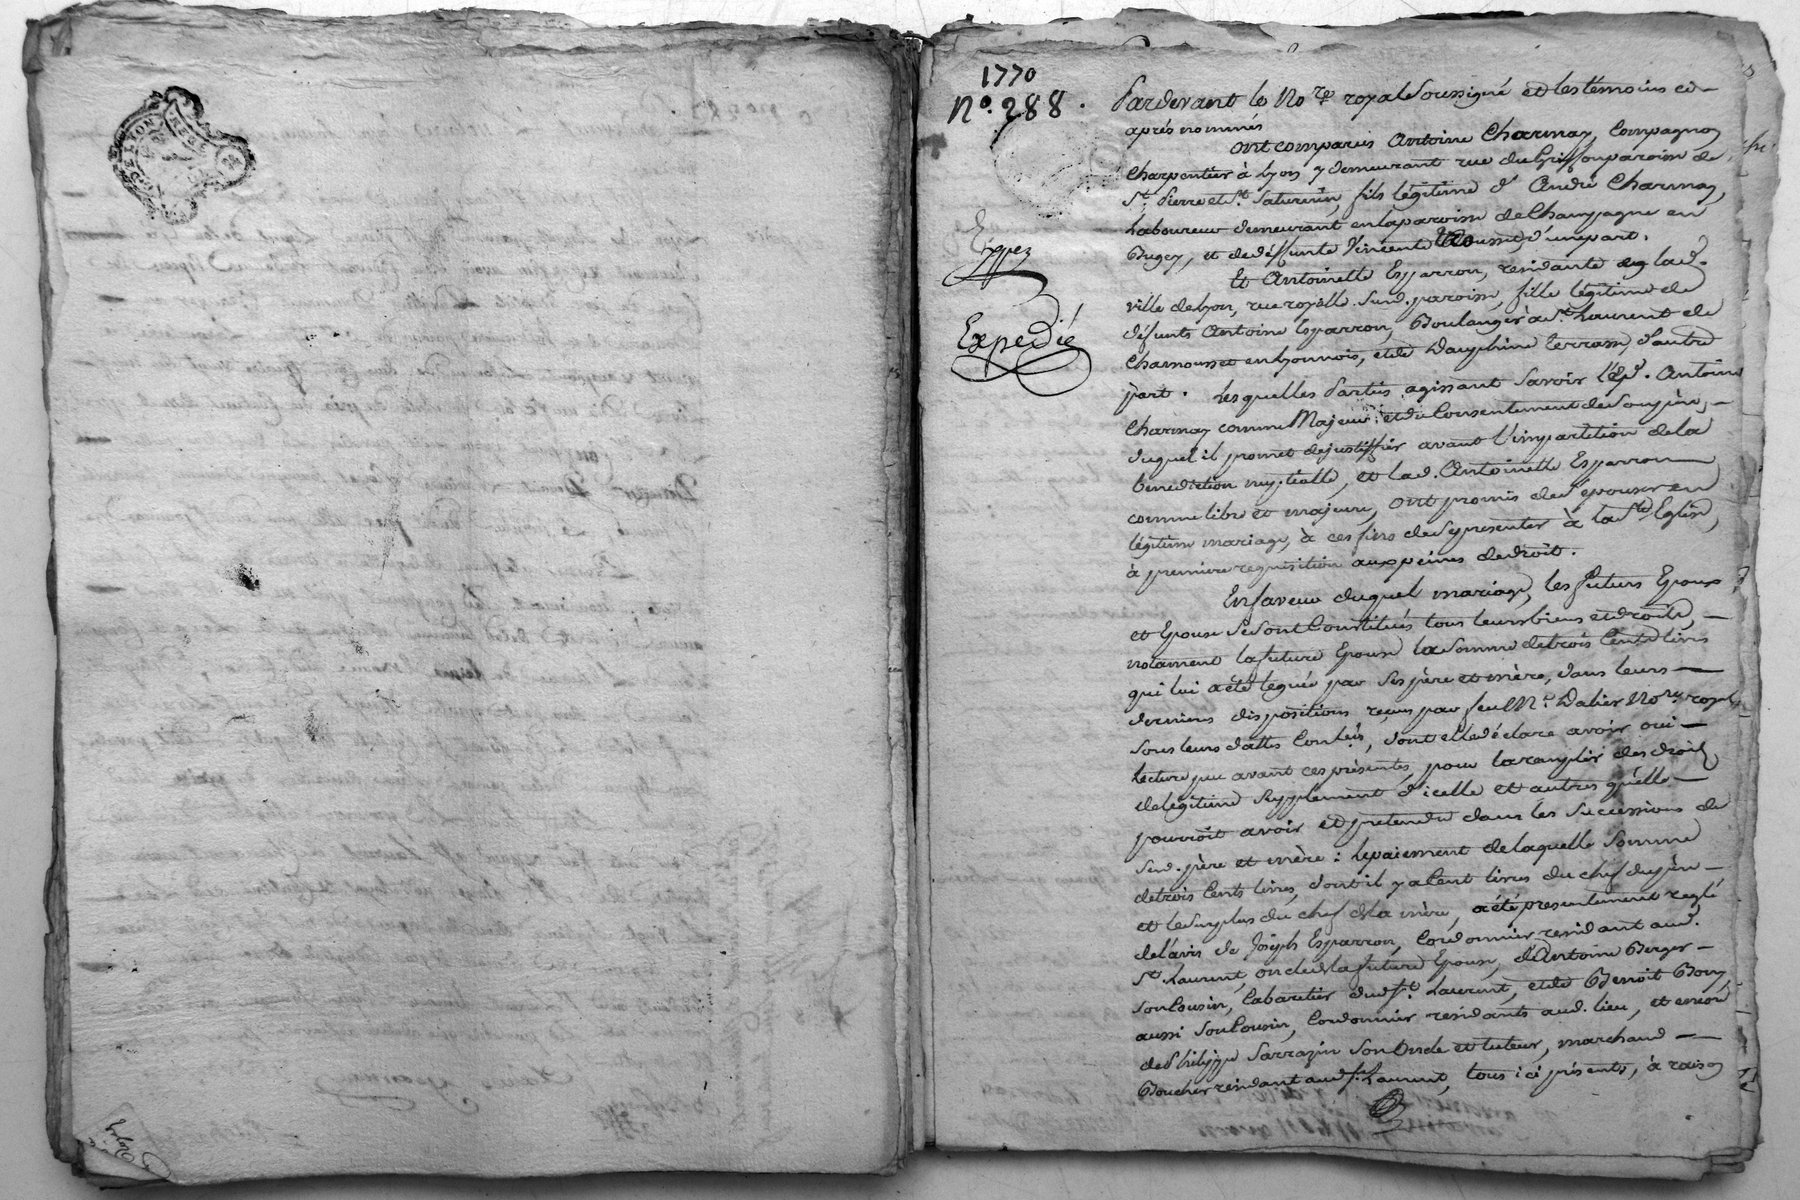 1770
N.º 288.
Expéz
Expedié
Pardevant le No.re royal Soussigné et les témoins cy-
après nommés
ont comparus Antoine Charmay, Compagnon
Charpentier à Lyon y demeurant rue du Griffon paroisse de
St. Pierre et St. Saturnin, fils légitime d' André Charmay,
Laboureur demeurant en la paroisse de Champagne en
Bugey, et de déffunte Vincente Rousset d'une part.
Et Antoinette Esparron, residante en lad.
ville de Lyon, rue royalle Susd. paroisse, fille légitime de
défunts Antoine Esparron, Boulanger à St. Laurent de
Chamousset en Lyonnois, et de Dauphine Terrasse, d'autre
part. Lesquelles Parties agissant Savoir led. Antoine
Charmay comme Majeur et du Consentement de Son père,
duquel il promet de justiffier avant l'impartition de la
benediction nuptialle, et lad. Antoinette Esparron
comme libre et majeure, ont promis de S'épouser en
légitime mariage, à ces fins de Se presenter à la Ste. Eglise,
à premiere requisition aux peines de droit.
En faveur duquel mariage, les futurs Epoux
et Epouse Se Sont Constitués tous leurs biens et droits,
notament la future Epouse la Somme de trois Cents livres
qui lui a été leguée par Ses père et mère, dans leurs
dernieres dispositions reçues par feu M.e Dalier No.re royal
Sous leurs dattes Contenües, dont elle déclare avoir oui
lecture peu avant ces présentes, pour la ramplir des droits
de légitime Supplement d'icelle et autres qu'elle
pourroit avoir et pretendre dans les Successions de
Sesd. père et mère : le paiement de laquelle Somme
de trois Cents livres, dont il y a Cent livres du chef du père
et le Surplus du chef de la mère, a été presentement reglé
de l'avis de Joseph Esparron, Cordonnier residant aud.
St. Laurent, oncle de la future Epouse, d'Antoine Berger
Son Cousin, Cabaretier dud. St. Laurent, et de Benoit Bony
aussi Son Cousin, Cordonnier residants aud. lieu, et encore
de Philippe Sarrazin Son Oncle et tuteur, marchand
Boucher residant aud. St. Laurent, tous ici présents, à raison